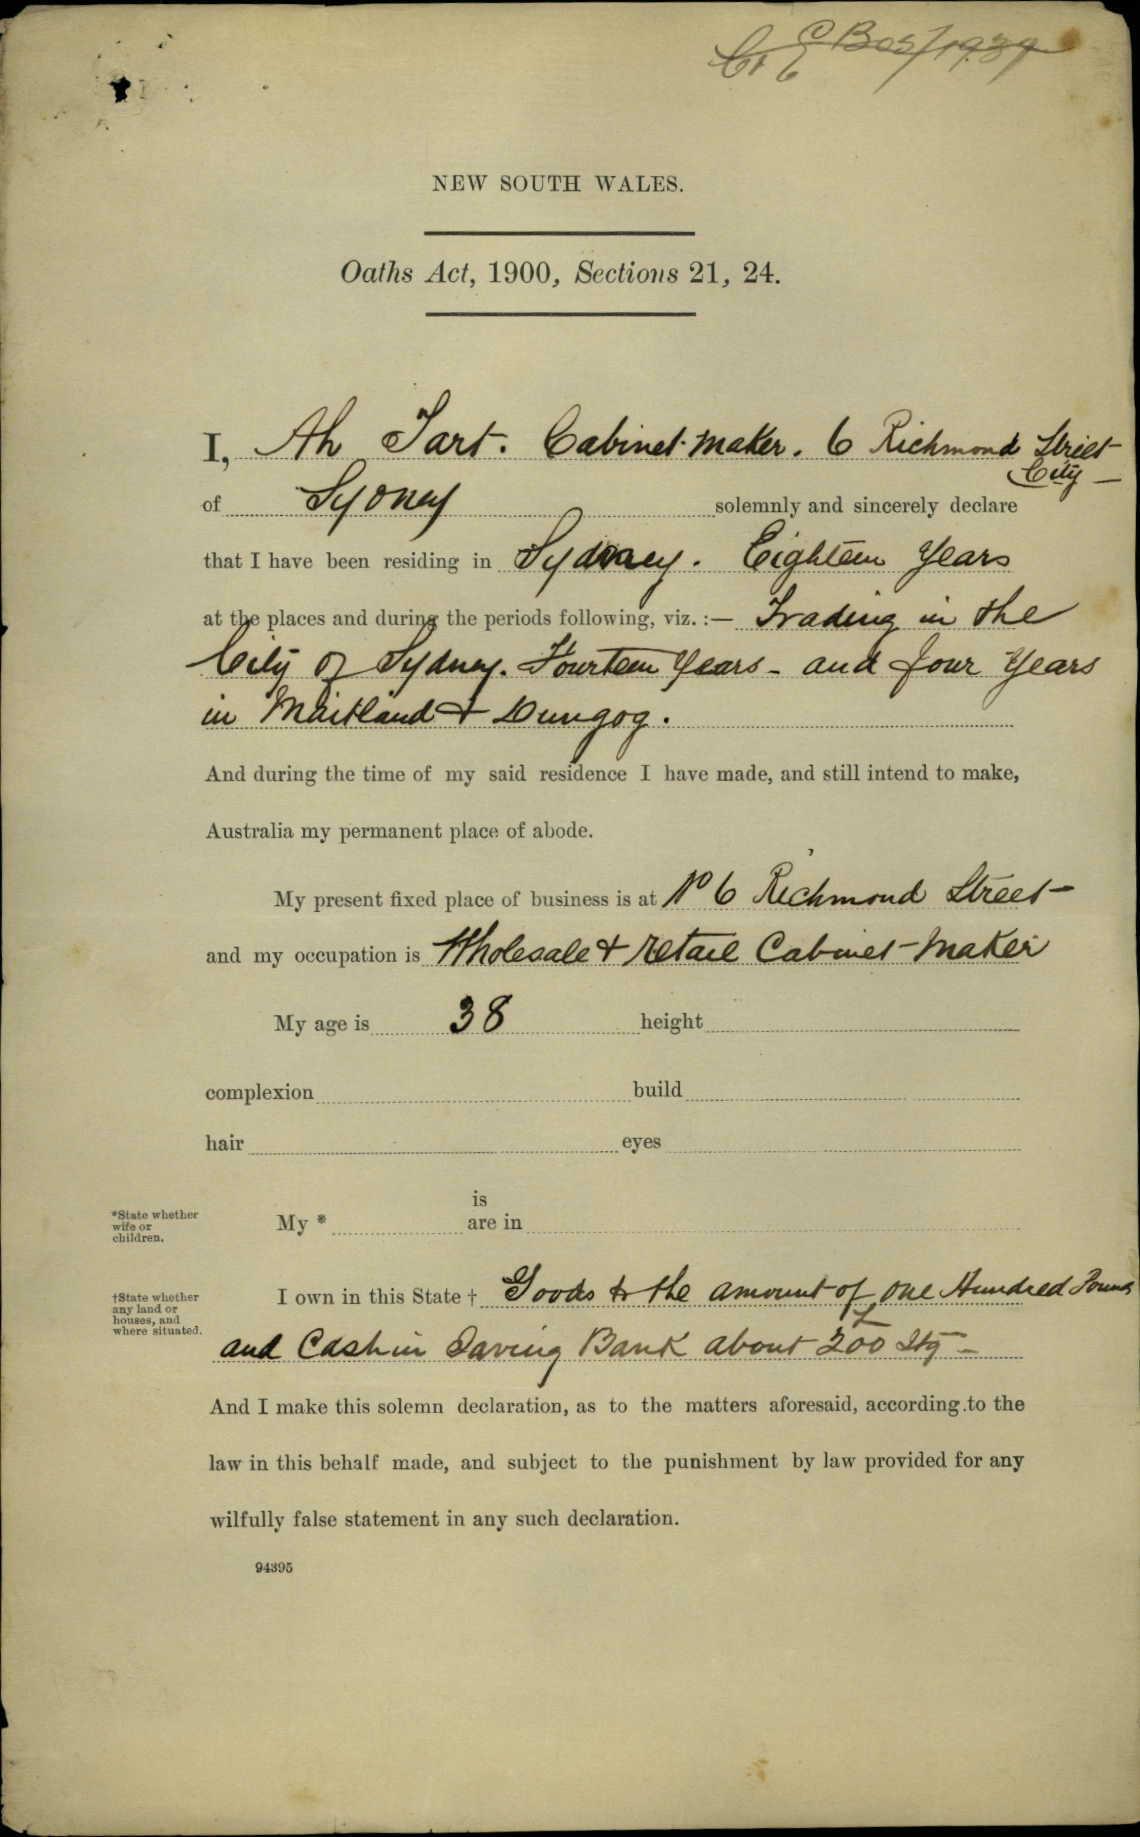 NEW SOUTH WALES.
Oaths Act, 1900, Sections 21, 24.
I, Ah Tart. Cabinet-maker. 6 Richmond Street
City
of Sydney solemnly and sincerely declare
that I have been residing in Sydney. Eighteen Years
at the places and during the periods following, viz. :— Trading in the
City of Sydney. Fourteen Years - and four Years
in Maitland & Dungog.
And during the time of my said residence I have made, and still intend to make,
Australia my permanent place of abode.
My present fixed place of business is at No 6 Richmond Street
and my occupation is Wholesale & retail Cabinet-Maker
My age is 38 height
complexion build
hair eyes
*State whether wife or children.
is
My * are in
†State whether any land or houses, and where situated.
I own in this State † Goods to the amount of one Hundred Pounds
and Cash in Saving Bank about £200 Stg -
And I make this solemn declaration, as to the matters aforesaid, according to the
law in this behalf made, and subject to the punishment by law provided for any
wilfully false statement in any such declaration.
94395